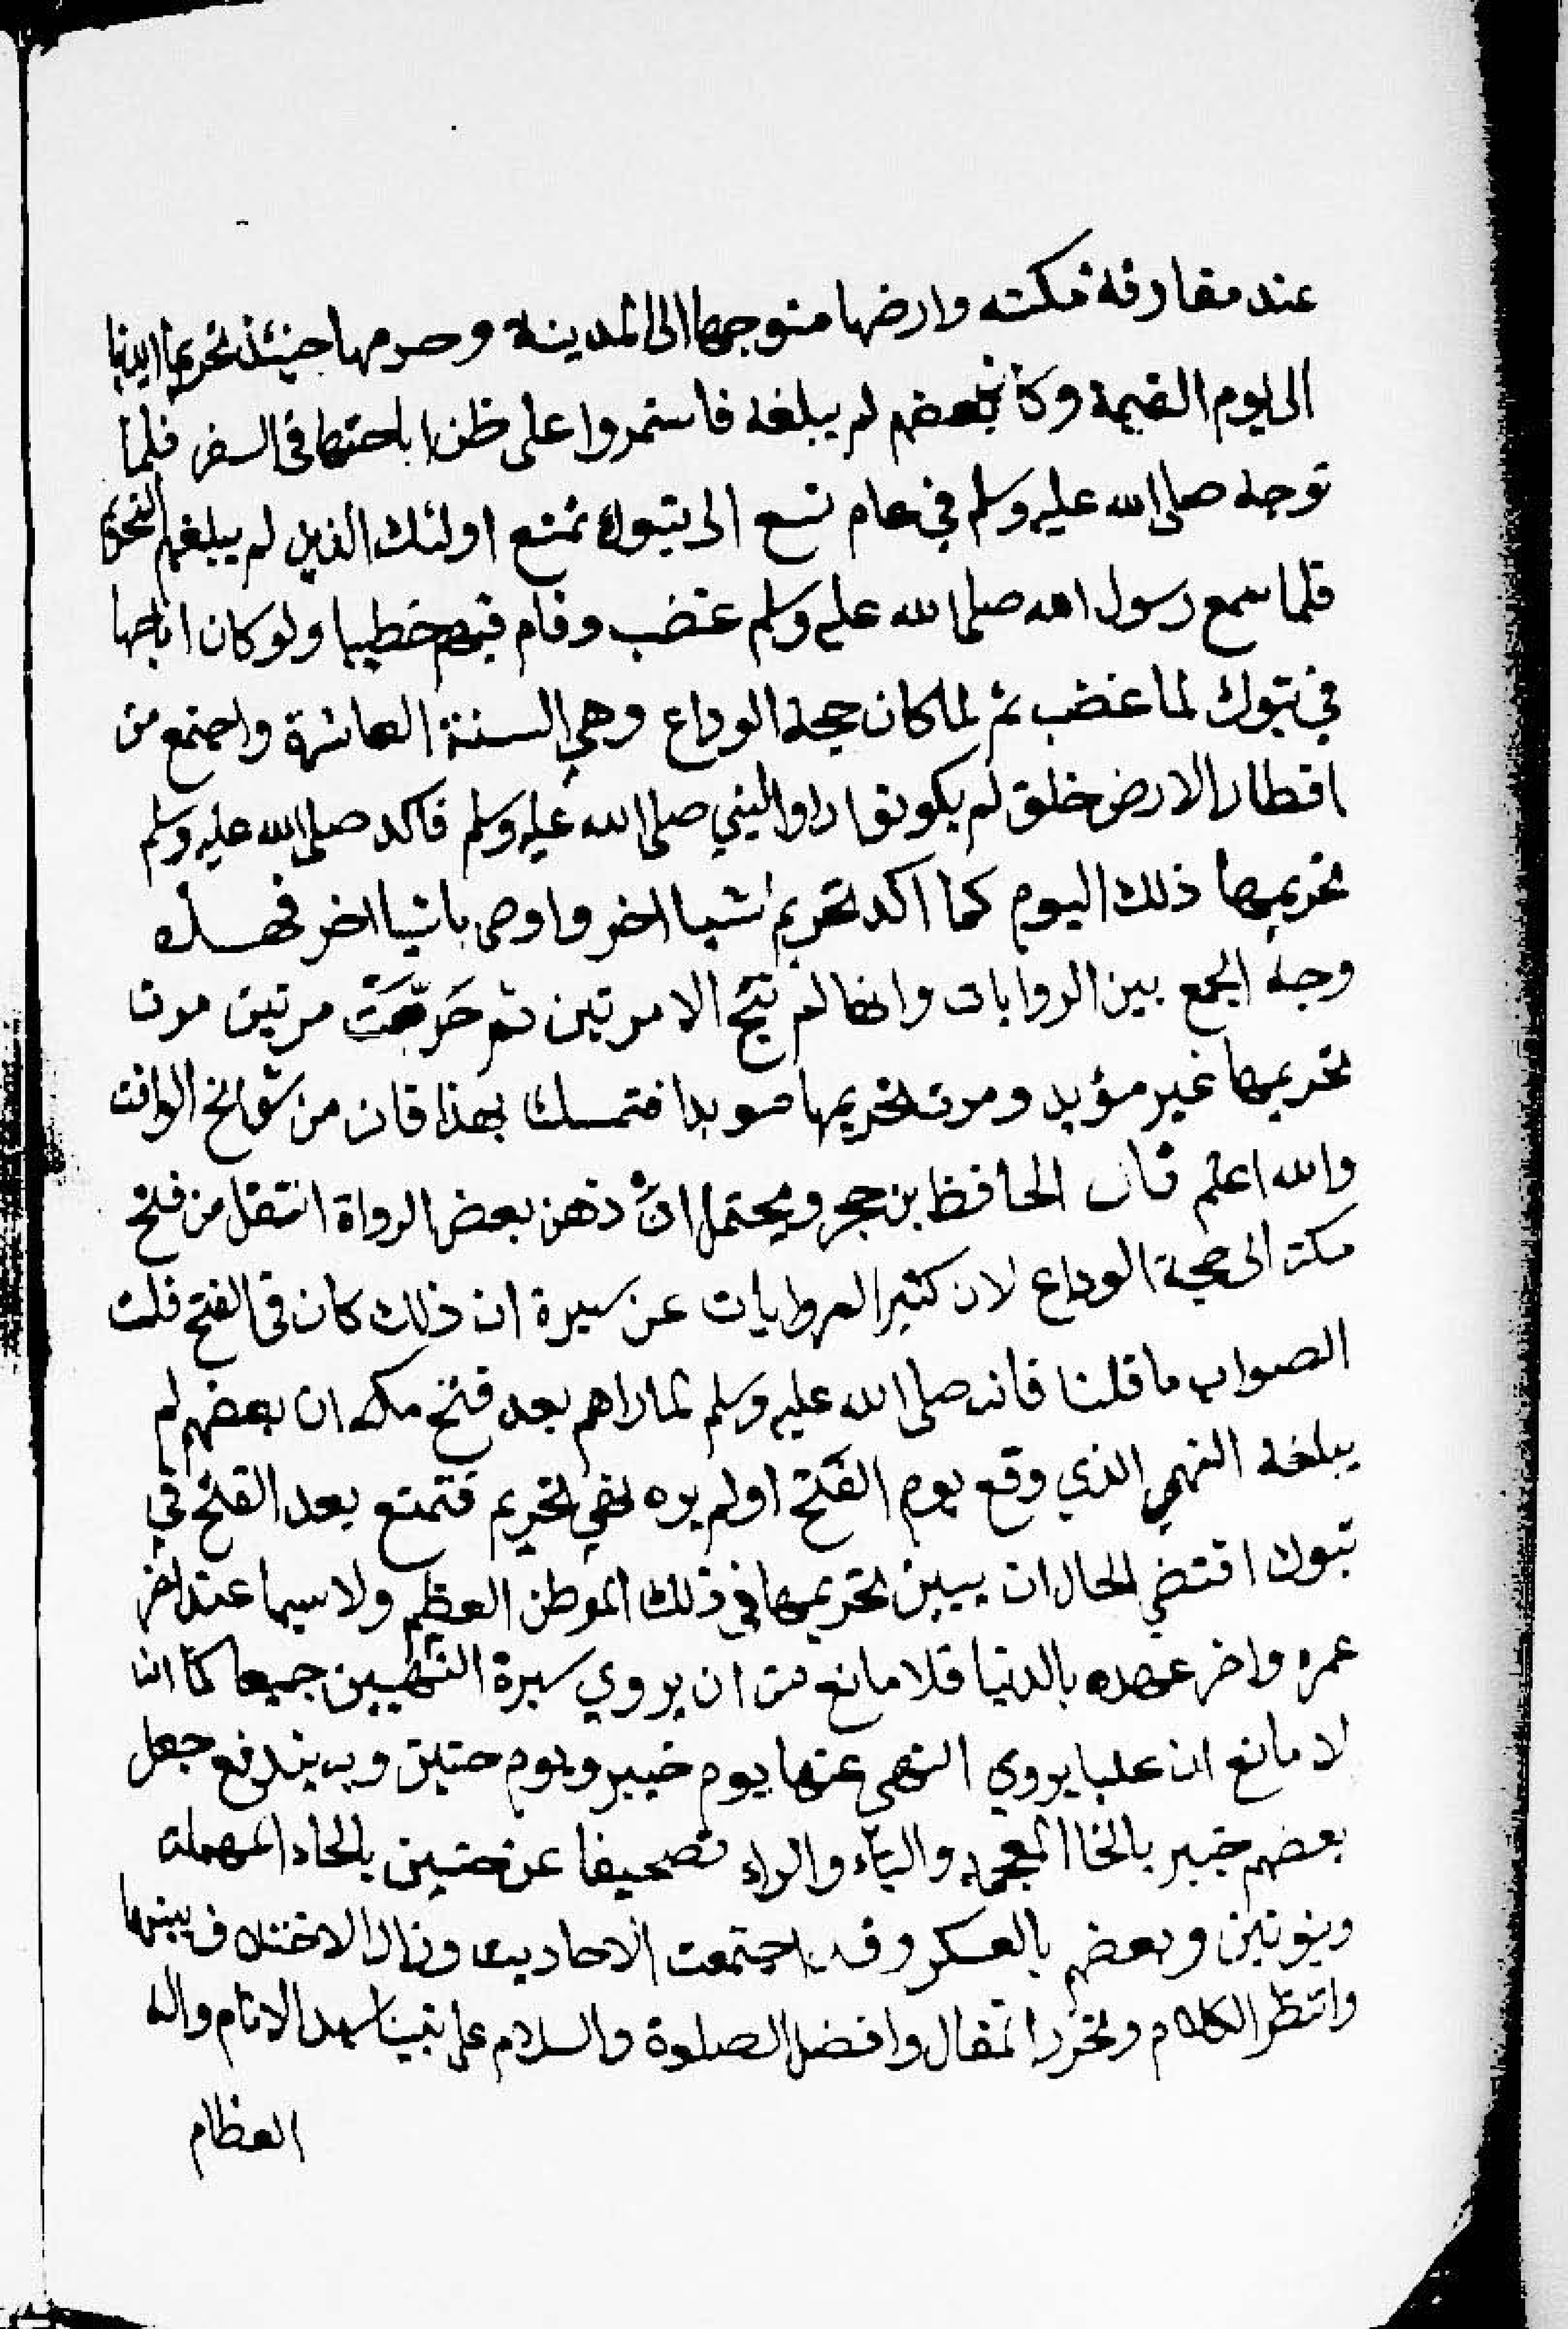 عند مفارقة مكته وارضها متوجها الى المدينة وحرمها حينئذ تحريما ابديا
الى يوم القيمة وكان بعضهم لم يبلغه فاستمروا على ظن اباحتها في السفر فلما
توجه صلى الله عليه وسلم في عام تسع الى تبوك تمتع اولئك الذين لم يبلغهم التحريم
فلما سمع رسول الله صلى الله عليه وسلم غضب وقام فيهم خطيبا ولو كان اباحها
في تبوك لما غضب ثم لما كان حجة الوداع وهي السنة العاشرة واجتمع من
اقطار الارض خلق لم يكونوا راوا النبي صلى الله عليه وسلم فاكد صلى الله عليه وسلم
تحريمها ذلك اليوم كما اكد تحريم اشيا اخر واوصى باشيا اخر فهذه
وجه الجمع بين الروايات وانها لم تبح الا مرتين ثم حَرِّمَتْ مرتين مرت
تحريمها غير مؤبد ومرت تحريمها موبدا فتمسك بهذا فان من الوافت
والله اعلم قال الحافظ بن حجر ويحتمل انَّ ذهن بعض الرواة انتقل من فتح
مكة الى حجة الوداع لان كثير الروايات عن سبرة ان ذلك كان في الفتح قلت
الصواب ما قلنا فانه صلى الله عليه وسلم لما راهم بعد فتح مكه ان بعضهم لم
يبلغه النهي الذي وقع يوم الفتح اولم يره نهي تحريم فتمتع بعد الفتح في
تبوك اقتضي الحال ان يبين تحريمها في ذلك الموطن العظيم ولا سيما عند اخر
عمره واخر عهده بالدنيا فلا مانع من ان يروي سبرة النهيين جميعا كما انا
لا مانع ان عليا يروي النهي عنها يوم خيبر ويوم حنين وبه يندفع جعل
بعضهم خيبر بالخا المعجمه والياء والراء تصحيفا عن حنين بالحاء المهملة
وبنونين وبعضهم بالعكس وقد اجتمعت الاحاديث وزال الاختلاف بينها
وانتظر الكلام وتحرر المقال وافضل الصلوة والسلام على نبينا سيد الانام واله
العظام